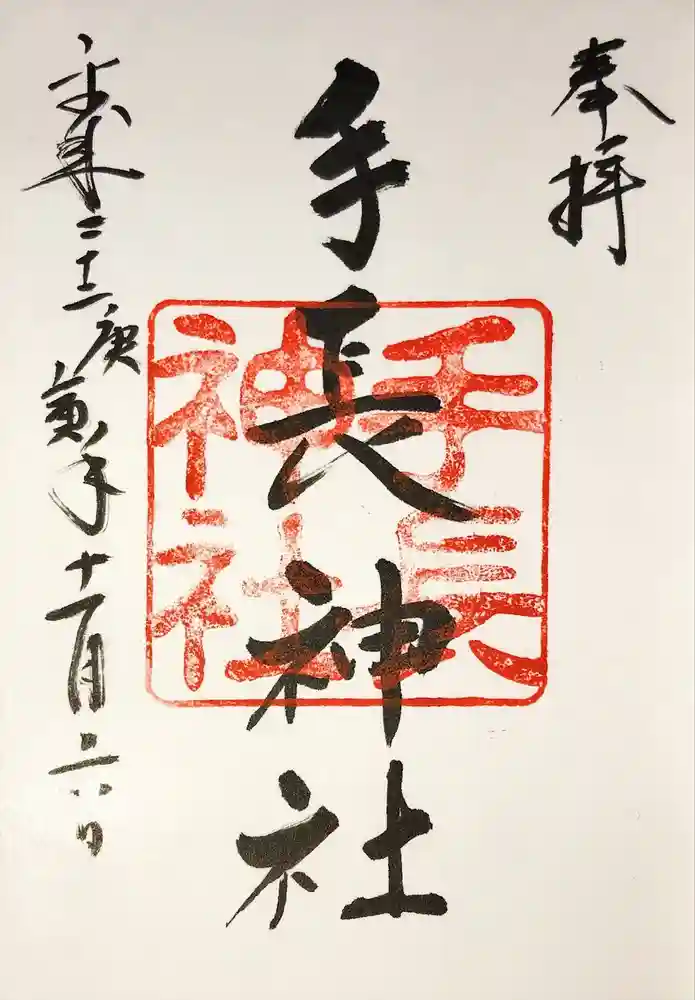 奉拝
手長神社
手長
神社
平成二十二庚寅年十一月六日